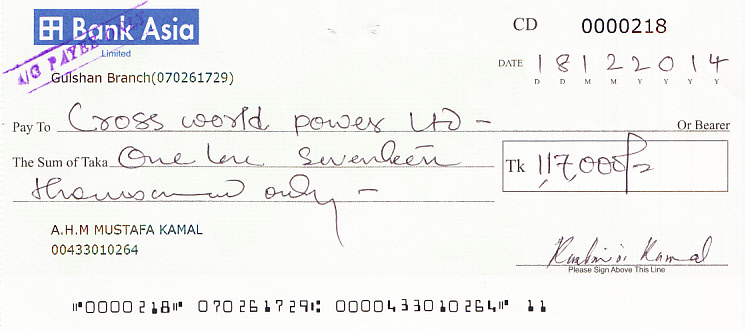 Bank Asia
Limited
A/C PAYEE ONLY
Gulshan Branch(070261729)
CD 0000218
DATE 18122014
D D M M Y Y Y Y
Pay To Cross world power Ltd - Or Bearer
The Sum of Taka One lac Seventeen
thousand only -
Tk 117,000/=
A.H.M MUSTAFA KAMAL
00433010264
Kamal
Please Sign Above This Line
⑈0000218⑈ 070261729⑆ 0000433010264⑈ 11